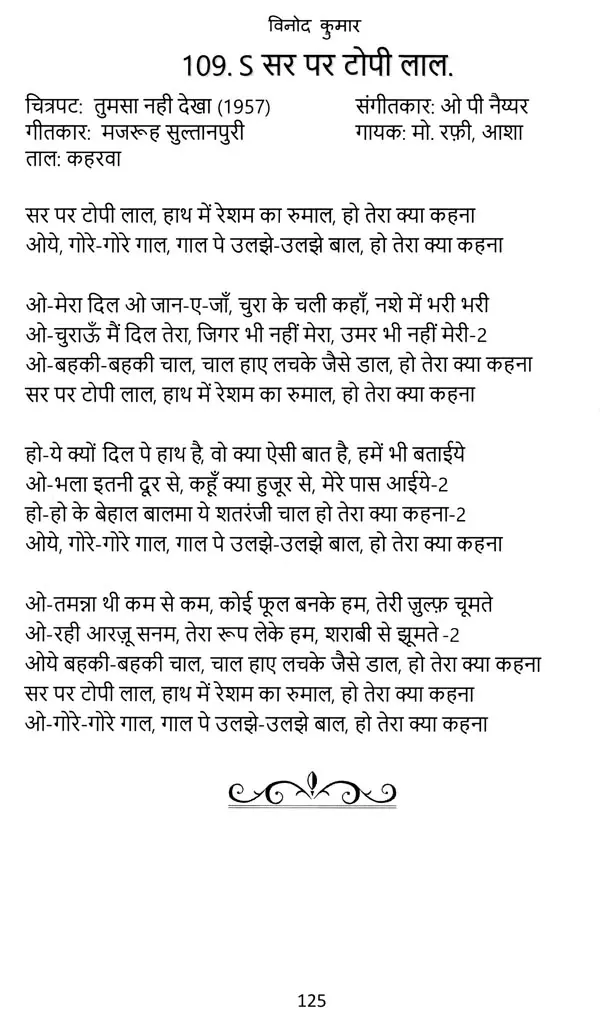 विनोद कुमार
109. S सर पर टोपी लाल.
चित्रपट: तुमसा नही देखा (1957) संगीतकार: ओ पी नैय्यर
गीतकार: मजरूह सुल्तानपुरी गायक: मो. रफ़ी, आशा
ताल: कहरवा
सर पर टोपी लाल, हाथ में रेशम का रुमाल, हो तेरा क्या कहना
ओये, गोरे-गोरे गाल, गाल पे उलझे-उलझे बाल, हो तेरा क्या कहना
ओ-मेरा दिल ओ जान-ए-जाँ, चुरा के चली कहाँ, नशे में भरी भरी
ओ-चुराऊँ मैं दिल तेरा, जिगर भी नहीं मेरा, उमर भी नहीं मेरी-2
ओ-बहकी-बहकी चाल, चाल हाए लचके जैसे डाल, हो तेरा क्या कहना
सर पर टोपी लाल, हाथ में रेशम का रुमाल, हो तेरा क्या कहना
हो-ये क्यों दिल पे हाथ है, वो क्या ऐसी बात है, हमें भी बताईये
ओ-भला इतनी दूर से, कहूँ क्या हुजूर से, मेरे पास आईये-2
हो-हो के बेहाल बालमा ये शतरंजी चाल हो तेरा क्या कहना-2
ओये, गोरे-गोरे गाल, गाल पे उलझे-उलझे बाल, हो तेरा क्या कहना
ओ-तमन्ना थी कम से कम, कोई फूल बनके हम, तेरी ज़ुल्फ़ चूमते
ओ-रही आरज़ू सनम, तेरा रूप लेके हम, शराबी से झूमते -2
ओये बहकी-बहकी चाल, चाल हाए लचके जैसे डाल, हो तेरा क्या कहना
सर पर टोपी लाल, हाथ में रेशम का रुमाल, हो तेरा क्या कहना
ओ-गोरे-गोरे गाल, गाल पे उलझे-उलझे बाल, हो तेरा क्या कहना
125